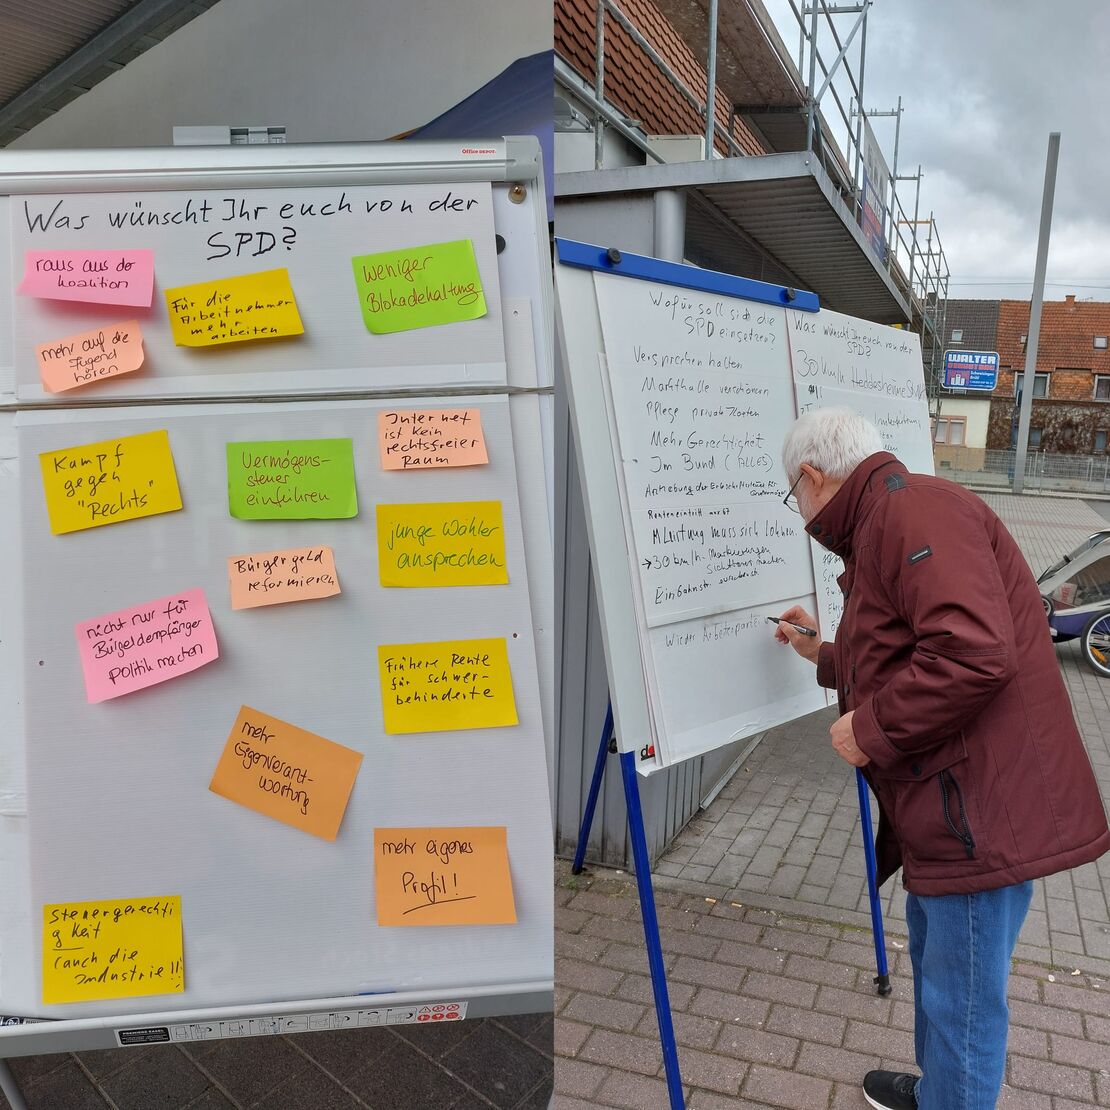 Office DEPOT.
Was wünscht Ihr euch von der
SPD?
raus aus der
Koalition
Für die
Arbeitnehmer
mehr
arbeiten
Weniger
Blokadehaltung
mehr auf die
Jugend
hören
Kampf
gegen
"Rechts"
Vermögens-
steuer
einführen
Internet
ist kein
rechtsfreier
Raum
junge Wähler
ansprechen
Bürgergeld
reformieren
nicht nur für
Bürgeldempfänger
Politik machen
Frühere Rente
für schwer-
behinderte
mehr
Eigenverant-
wortung
mehr eigenes
Profil!
Steuergerechti
gkeit
(auch die
Industrie!!
Wofür soll sich die
SPD einsetzen?
Versprechen halten
Markthalle verschönern
Pflege private Kosten
Mehr Gerechtigkeit
Im Bund (ALLES)
der
Renteneintritt mit 67
Leistung muss sich lohnen.
→30 km/h-Markierungen
sichtbarer machen
Einbahnstr.
Wieder Arbeiterpartei
Was wünscht Ihr euch von der
SPD?
30 km/h Heddesheimer Str.
WALTER